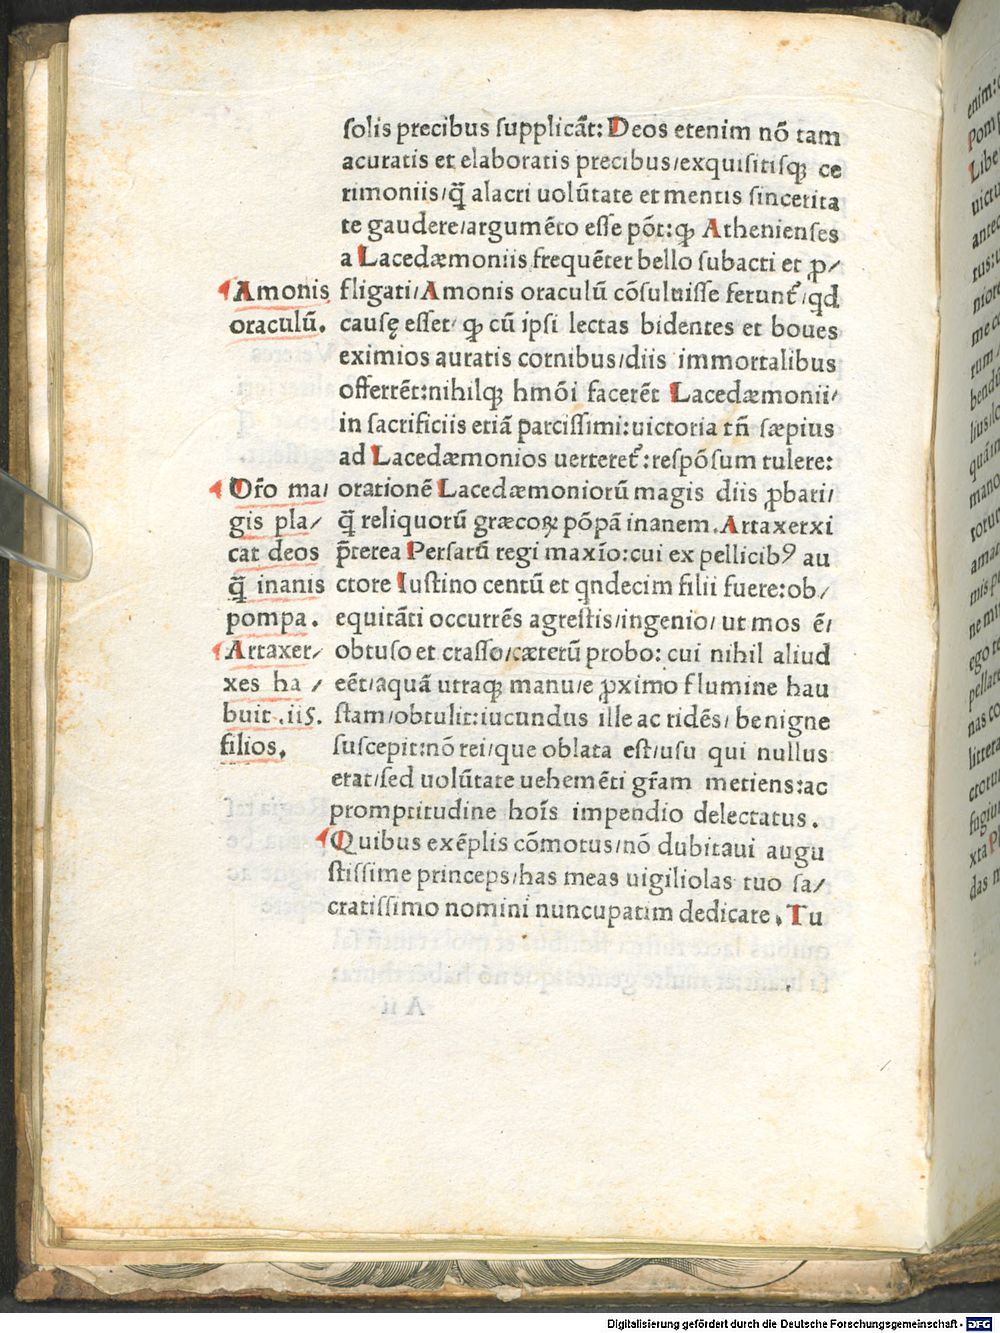 solis precibus supplicãt: Deos etenim nõ tam
acuratis et elaboratis precibus/exquisitisqꝫ ce
rimoniis/q̃ alacri uolũtate et mentis sincerita
te gaudere/argumẽto esse põt:qꝙ Athenienses
a Lacedæmoniis frequẽter bello subacti et ꝓ/
fligati/Amonis oraculũ cõsuluisse ferunt᷑/qd
causę esset/ ꝙ cũ ipsi lectas bidentes et boues
eximios auratis cornibus/diis immortalibus
offerrẽt:nihilqꝫ hmõi facerẽt Lacedæmonii/
in sacrificiis etiã parcissimi:uictoria tñ sæpius
ad Lacedæmonios uerteret᷑:respõsum tulere:
orationẽ Lacedæmoniorũ magis diis ꝓbari/
q̃ reliquorũ græcoꝝ põpã inanem. Artaxerxi
p̃terea Persarũ regi maxĩo:cui ex pellicibꝰ au
ctore Iustino centũ et qndecim filii fuere:ob/
equitãti occurrẽs agrestis/ingenio/ ut mos ẽ/
obtuso et crasso/cæterũ probo: cui nihil aliud
eẽt/aquã utraqꝫ manu/e ꝓximo flumine hau
stam/obtulit:iucundus ille ac ridẽs/ benigne
suscepit:nõ rei/que oblata est/usu qui nullus
erat/sed uolũtate uehemẽti gr̃am metiens:ac
promptitudine hoĩs impendio delectatus.
Quibus exẽplis cõmotus/nõ dubitaui augu
stissime princeps/has meas uigiliolas tuo sa/
cratissimo nomini nuncupatim dedicare. Tu
Amonis
oraculũ.
Or̃o ma/
gis pla/
cat deos
q̃ inanis
pompa.
Artaxer/
xes ha /
buit .ii5.
filios.
Digitalisierung gefördert durch die Deutsche Forschungsgemeinschaft - DFG